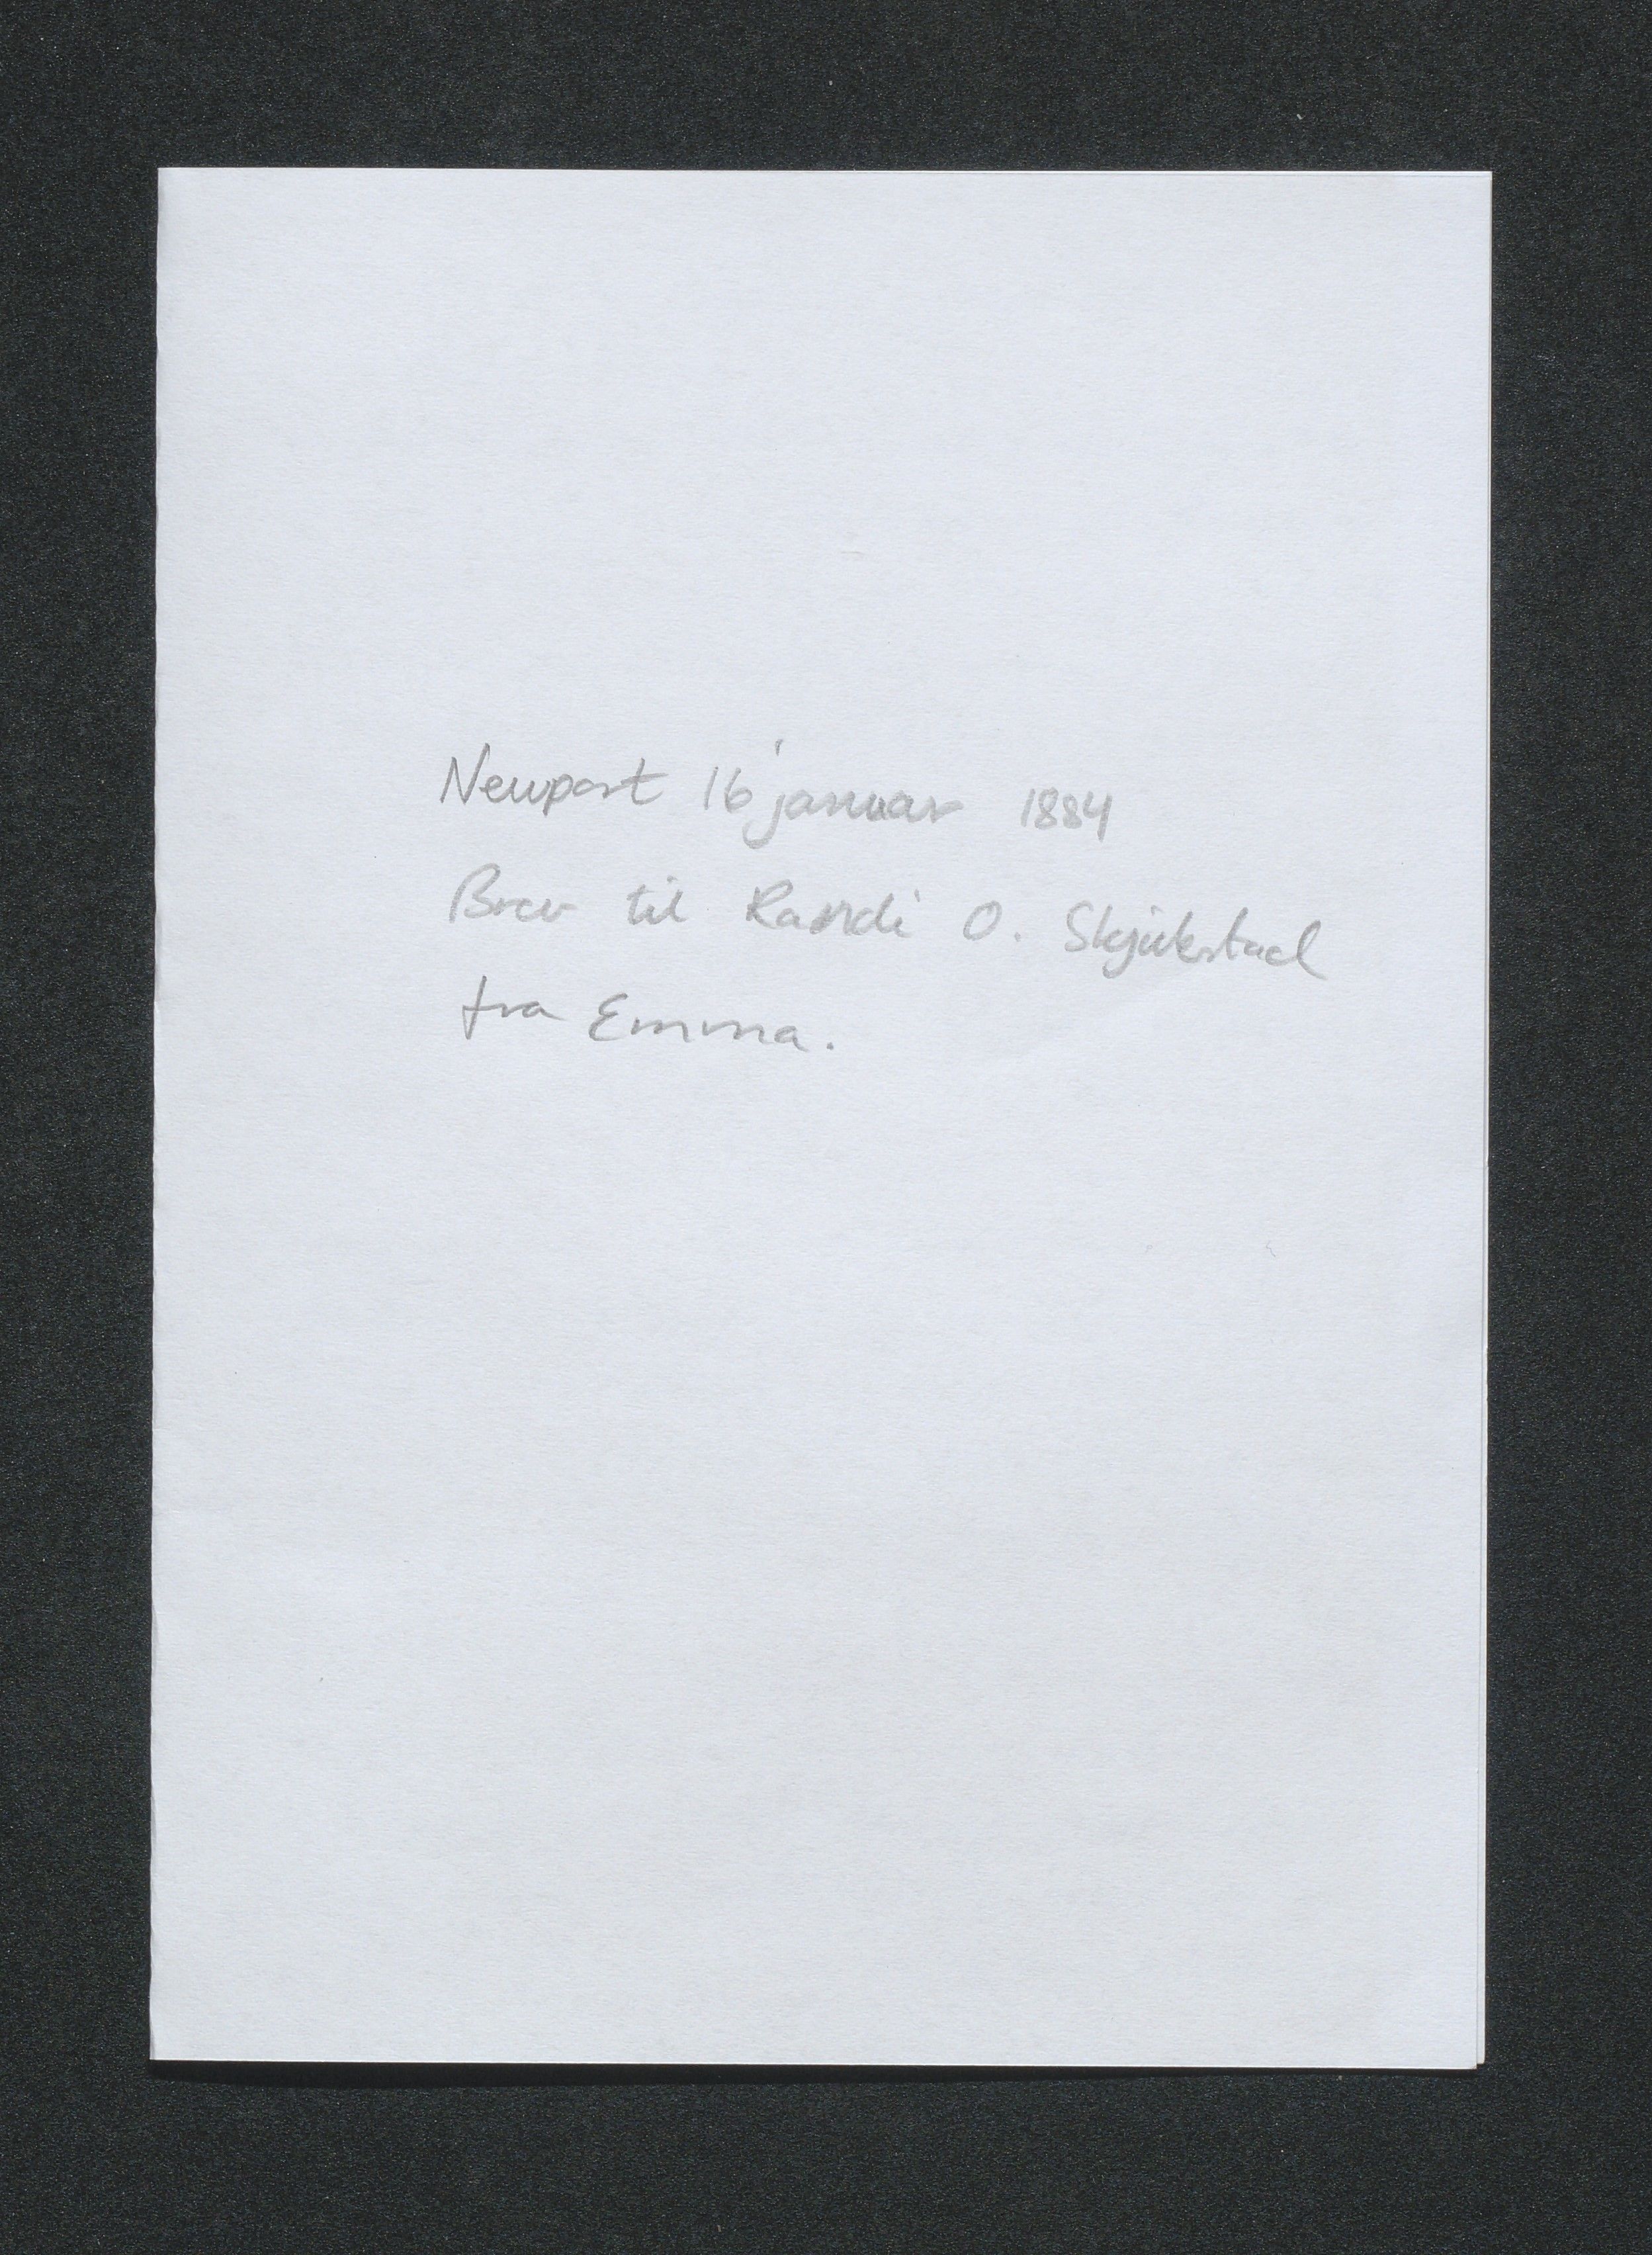 Newport 16 januar 1884
Brev til Randi O. Skjükstad
fra Emma.